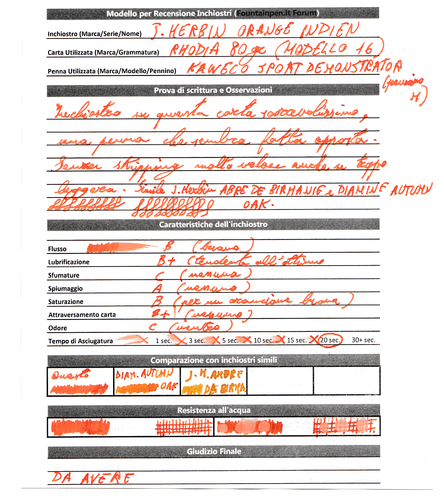 Modello per Recensione Inchiostri (Fountainpen.it Forum)
Inchiostro (Marca/Serie/Nome) J. HERBIN ORANGE INDIEN
Carta Utilizzata (Marca/Grammatura) RHODIA 80gr (MODELLO 16)
Penna Utilizzata (Marca/Modello/Pennino) KAWECO SPORT DEMONSTRATOR
Prova di scrittura e Osservazioni
Inchiostro su questa carta
una penna che sembra fatta apposta.
skipping molto veloce anche se troppo
leggera. Simile J. Herbin AMBRE DE BIRMANIE e DIAMINE AUTUMN
OAK.
Caratteristiche dell'inchiostro
Flusso B (buono)
Lubrificazione B+ (tendente all'ottimo
Sfumature C (nessuna)
Spiumaggio A (nessuno)
Saturazione B (per un arancione buona)
Attraversamento carta B+ (nessuno)
Odore C (neutro)
Tempo di Asciugatura 1 sec. 3 sec. 5 sec. 10 sec. 15 sec. 20 sec. 30+ sec.
Comparazione con inchiostri simili
Questo DIAM. AUTUMN OAK J. H. AMBRE DE BIRMA
Resistenza all'acqua
Giudizio Finale
DA AVERE